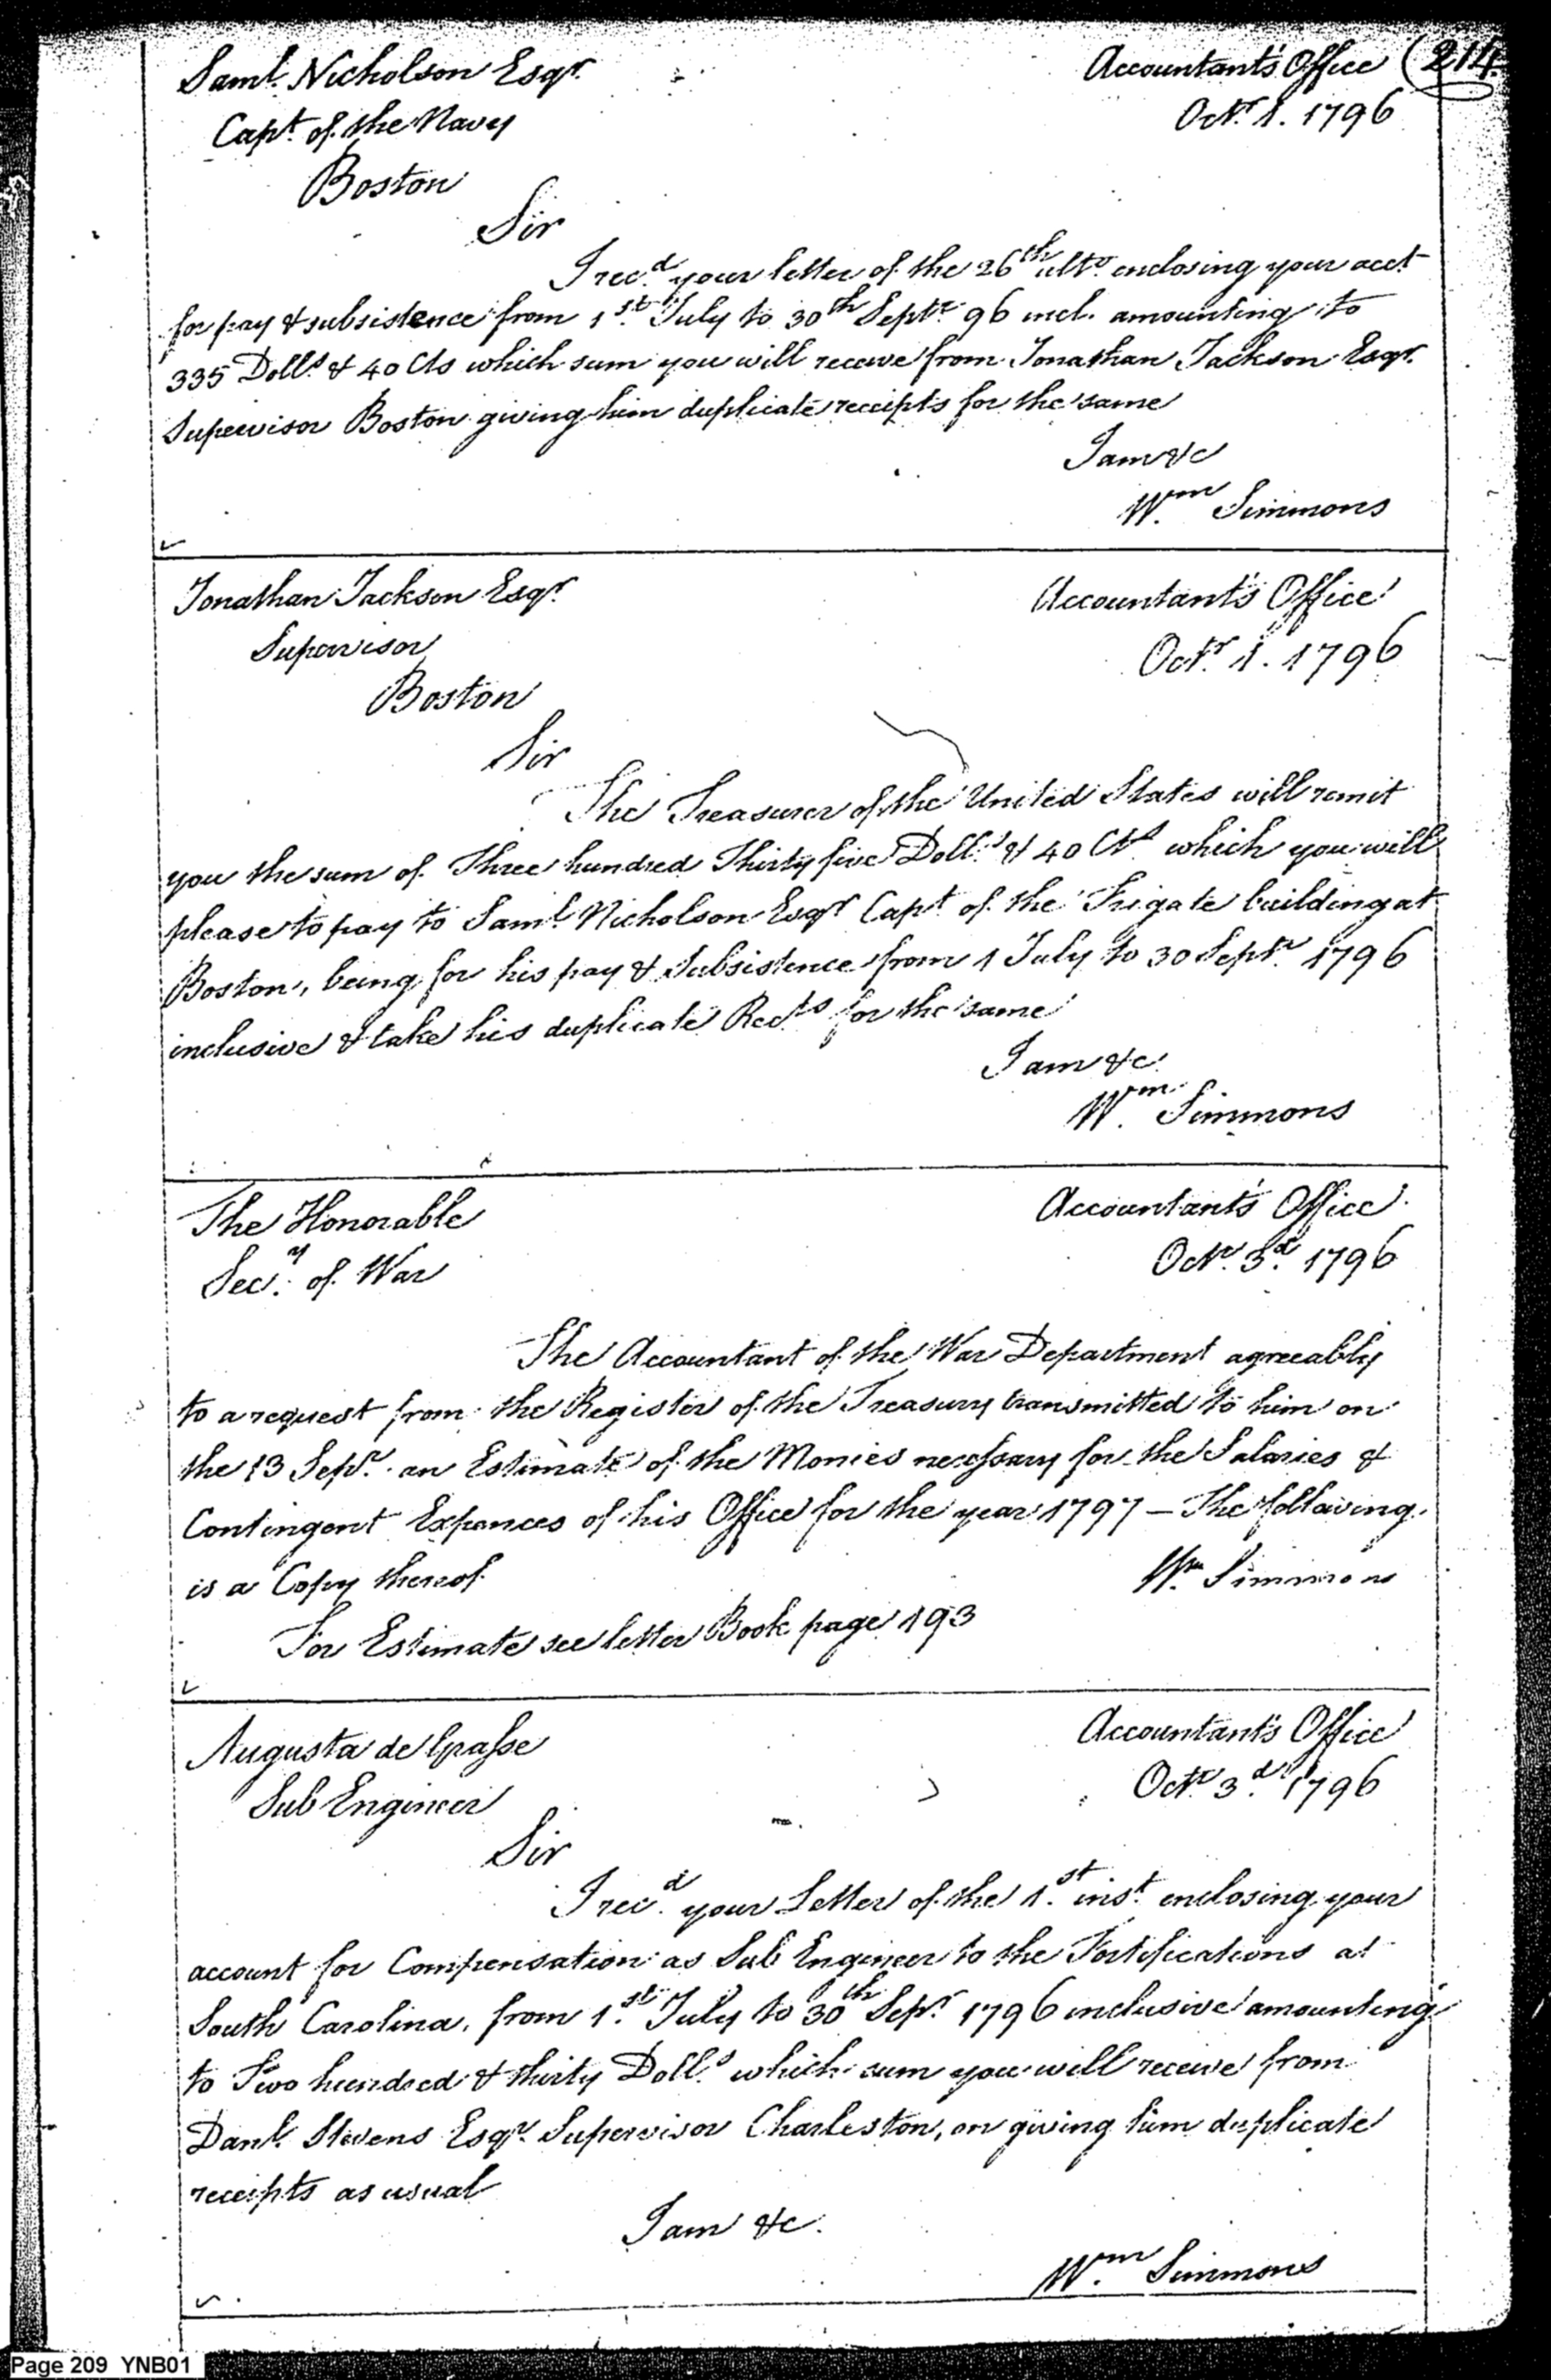 Saml. Nicholson Esqr. Accountant's Office (214
Capt. of the Navy Octr. 1. 1796
Boston
Sir
I recd. your letter of the 26th ulto. enclosing your acct
for pay & subsistence from 1st. July to 30th Septr. 96 incl. amounting to
335 Dolls. & 40 Cts which sum you will receive from Jonathan Jackson Esqr.
Supervisor Boston giving him duplicate receipts for the same
I am &c
Wm. Simmons
Jonathan Jackson Esqr. Accountant's Office
Supervisor Octr. 1. 1796
Boston
Sir
The Treasurer of the United States will remit
you the sum of Three hundred Thirty five Dolls. & 40 Cts. which you will
please to pay to Saml. Nicholson Esqr Capt. of the Frigate building at
Boston, being for his pay & Subsistence from 1 July to 30 Septr. 1796
inclusive & take his duplicate Rects for the same
I am &c.
Wm. Simmons
The Honorable Accountant's Office.
Secy. of War Octr. 3d. 1796
The Accountant of the War Department agreeably
to a request from the Register of the Treasury transmitted to him on
the 13 Sepr. an Estimate of the Monies necessary for the Salaries &
Contingent Expences of his Office for the year 1797 — The following
is a Copy thereof. Wm. Simmons
For Estimate see letter Book page 193
Augusta de Grasse Accountant's Office
Sub Engineer Octr. 3d. 1796
Sir
I recd. your Letter of the 1st. inst. enclosing your
account for Compensation as Sub Engineer to the Fortifications at
South Carolina, from 1st. July to 30th Sepr. 1796 inclusive amounting
to Two hundred & thirty Dolls. which sum you will receive from
Danl. Stevens Esqr. Supervisor Charleston, on giving him duplicate
receipts as usual
I am &c.
Wm. Simmons
Page 209 YNB01